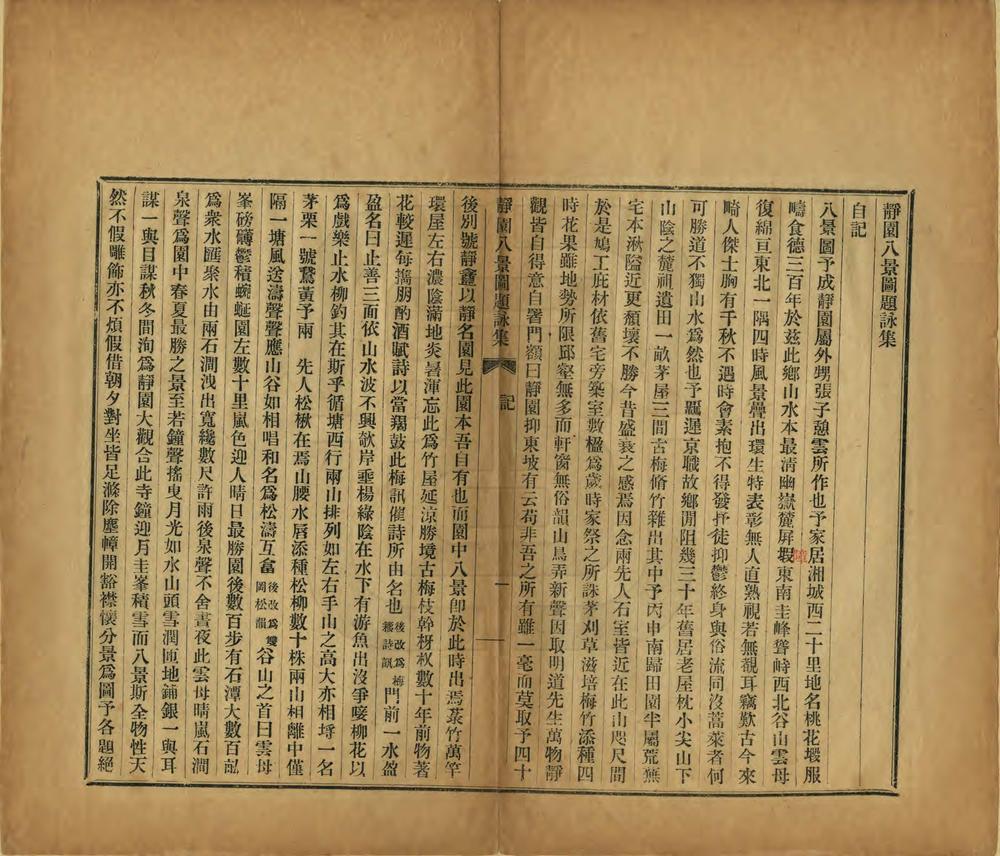 靜園八景圖題詠集
自記
八景圖予成靜園屬外甥張子憩雲所作也予家居湘城西二十里地名桃花塅服
疇食德三百年於兹此鄉山水本最清幽嶽麓屏塅東南圭峰聳峙西北谷山雲母
障
復綿亘東北一隅四時風景疊出環生特表彰無人直熟視若無覩耳竊歎古今來
畸人傑士胸有千秋不遇時會素抱不得發抒徒抑鬱終身與俗流同沒蒿萊者何
可勝道不獨山水爲然也予羈遲京職故鄉間阻幾三十年舊居老屋枕小尖山下
山陰之麓祖遺田一畝茅屋三間古梅脩竹雜出其中予丙申南歸田園半屬荒蕪
宅本湫隘近更頹壞不勝今昔盛衰之感焉因念兩先人石室皆近在此山咫尺間
於是鳩工庀材依舊宅旁築室數楹爲歲時家祭之所誅茅刈草滋培梅竹添種四
時花果雖地勢所限邱壑無多而軒窗無俗韻山鳥弄新聲因取明道先生萬物靜
觀皆自得意自署門額曰靜園抑東坡有云苟非吾之所有雖一毫而莫取予四十
靜園八景圖題詠集
記
一
後別號靜盦以靜名園見此園本吾自有也而園中八景卽於此時出焉叢竹萬竿
環屋左右濃陰滿地炎暑渾忘此爲竹屋延涼勝境古梅枝幹枒杈數十年前物著
花較遲每攜朋酌酒賦詩以當羯鼓此梅訊催詩所由名也後改爲梅龕詩訊門前一水盈
盈名曰止善三面依山水波不興欹岸垂楊綠陰在水下有游魚出沒爭唼柳花以
爲戲樂止水柳釣其在斯乎循塘西行兩山排列如左右手山之高大亦相埒一名
茅栗一號鵞黃予兩　先人松楸在焉山腰水唇添種松柳數十株兩山相離中僅
隔一塘風送濤聲聲應山谷如相唱和名爲松濤互答後改爲雙岡松韻谷山之首曰雲母
峯磅礴鬱積蜿蜒園左數十里嵐色迎人晴日最勝園後數百步有石潭大數百畝
爲衆水匯聚水由兩石澗洩出寬纔數尺許雨後泉聲不舍晝夜此雲母晴嵐石澗
泉聲爲園中春夏最勝之景至若鐘聲搖曳月光如水山頭雪潤匝地鋪銀一與耳
謀一與目謀秋冬間洵爲靜園大觀合此寺鐘迎月圭峯積雪而八景斯全物性天
然不假雕飾亦不煩假借朝夕對坐皆足滌除塵㡣開豁襟懷分景爲圖予各題絕